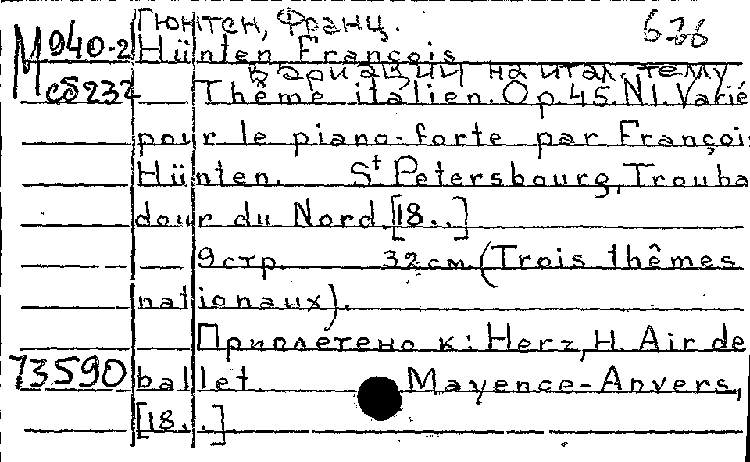 Гюнтен, Франц. 636
М 940-2 Hünten François
Вариации на итал. тему
сб 232 Thême italien. Op. 45. N1. Varié
pour le piano-forte par François
Hünten. St Petersbourg, Trouba
dour du Nord [18..]
9 стр. 32 см. (Trois thêmes
nationaux).
Приплетено к: Herz, H. Air de
73590 ballet. Mayence-Anvers,
[18..]